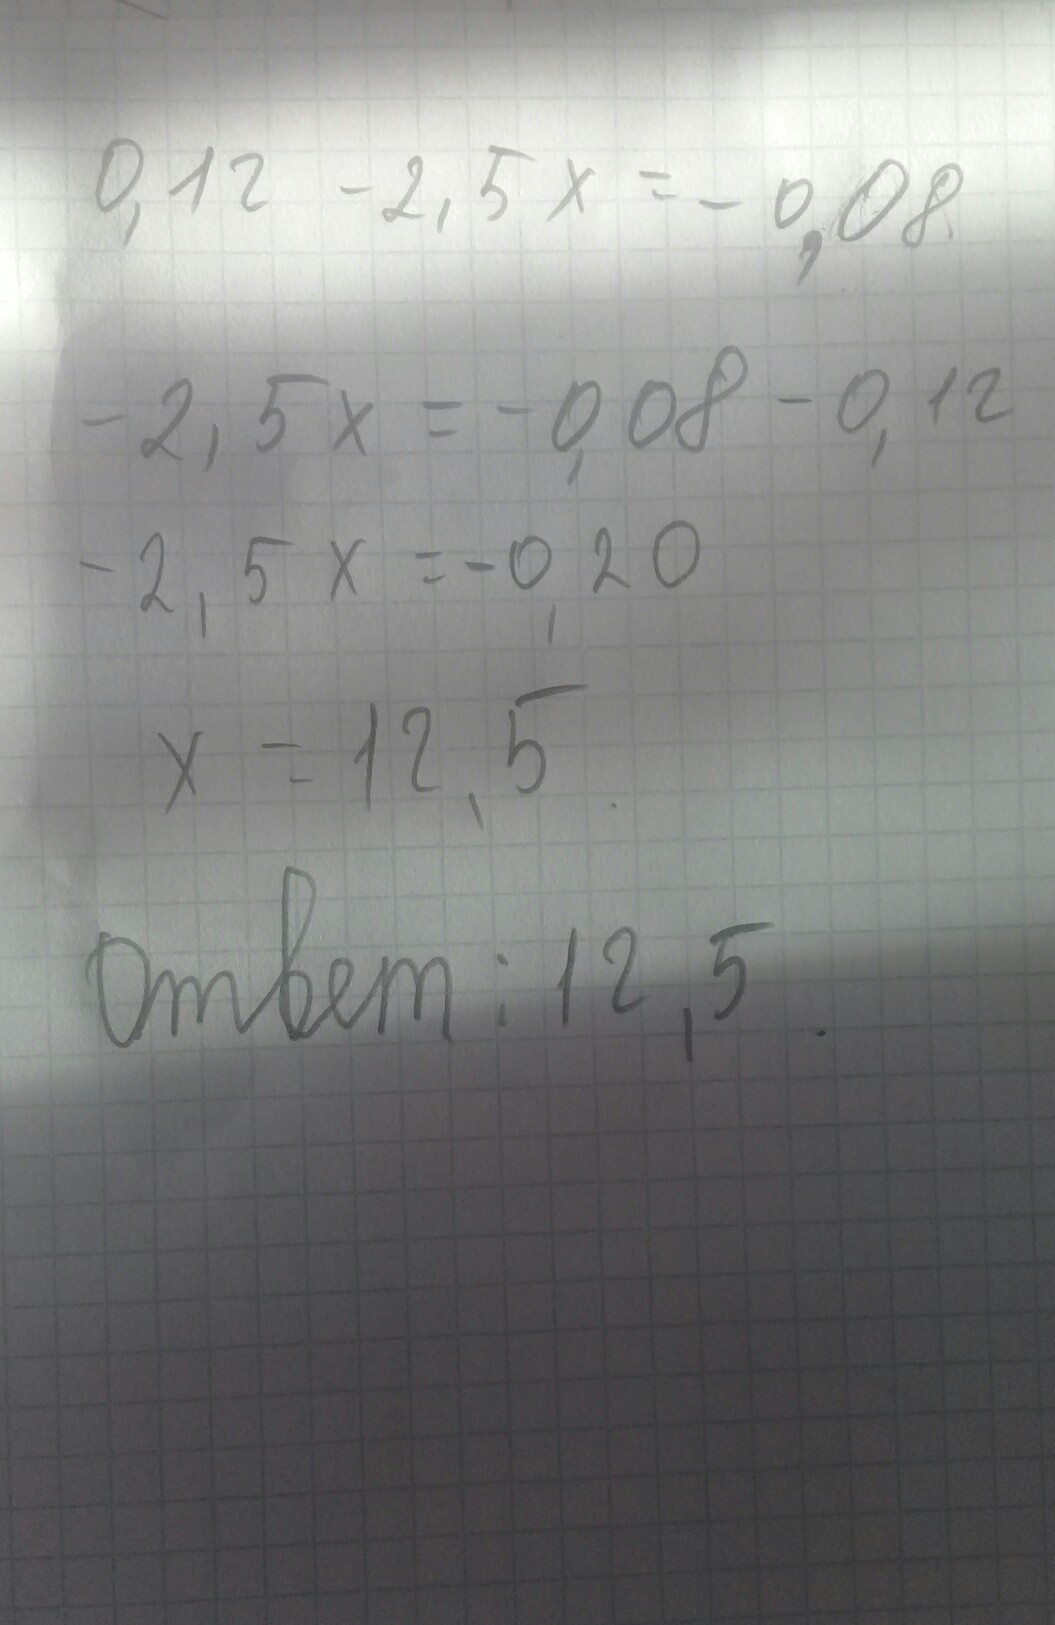 0,12 -2,5x=-0,08
-2,5x=-0,08-0,12
-2,5x=-0,20
x=12,5.
Ответ: 12,5.